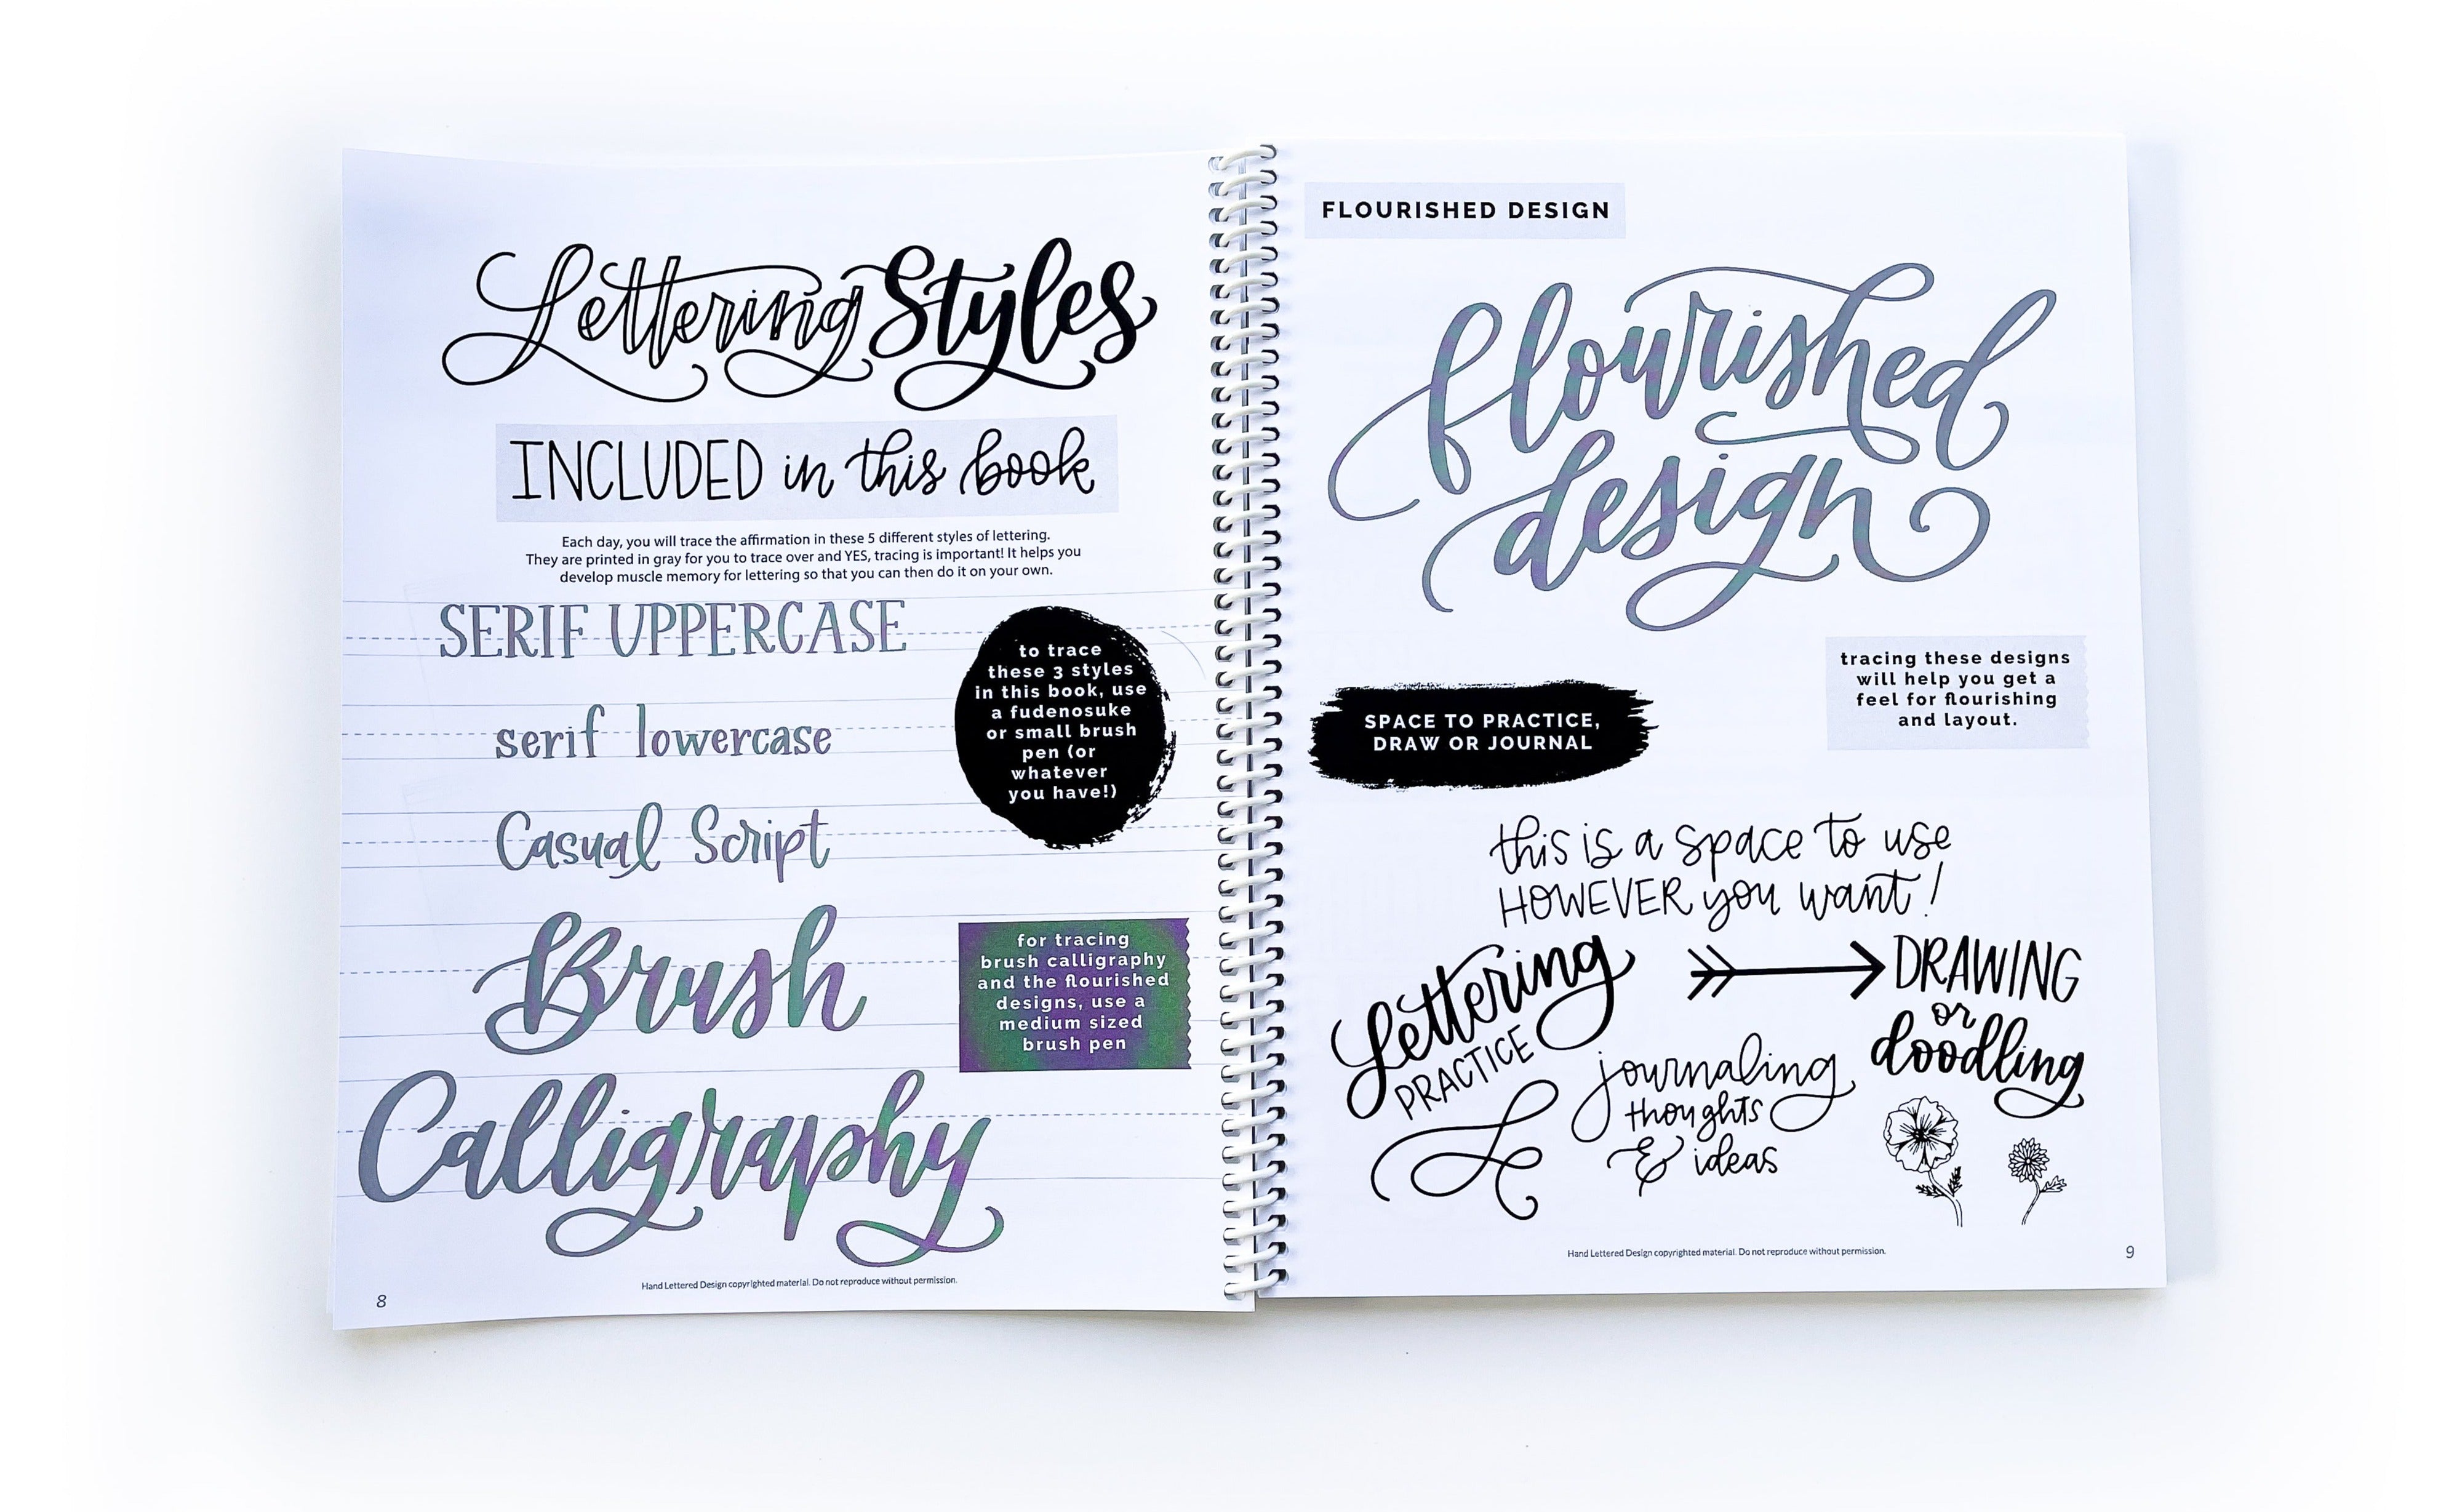 Lettering Styles
INCLUDED in this book
Each day, you will trace the affirmation in these 5 different styles of lettering.
They are printed in gray for you to trace over and YES, tracing is important! It helps you
develop muscle memory for lettering so that you can then do it on your own.
SERIF UPPERCASE
serif lowercase
Casual Script
to trace
these 3 styles
in this book, use
a fudenosuke
or small brush
pen (or
whatever
you have!)
Brush
Calligraphy
for tracing
brush calligraphy
and the flourished
designs, use a
medium sized
brush pen
Hand Lettered Design copyrighted material. Do not reproduce without permission.
8
FLOURISHED DESIGN
flourished
design
tracing these designs
will help you get a
feel for flourishing
and layout.
SPACE TO PRACTICE,
DRAW OR JOURNAL
this is a space to use
HOWEVER you want!
Lettering
PRACTICE
journaling
thoughts
& ideas
DRAWING
or
doodling
Hand Lettered Design copyrighted material. Do not reproduce without permission.
9